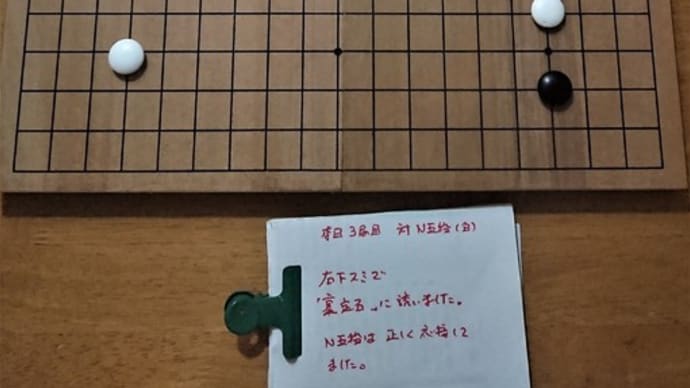 本日3局目 対N五段(白)
右下スミで
「裏定石」に誘いました。
N五段は正しく応接して
きました。